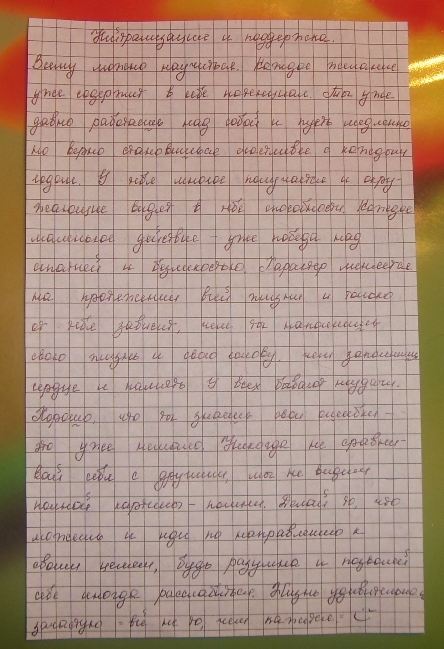 Нейтрализация и поддержка.
Всему можно научиться. Каждое желание
уже содержит в себе потенциал. Ты уже
давно работаешь над собой и пусть медленно
но верно становишься счастливее с каждым
годом. У тебя многое получается и окру-
жающие видят в тебе способности. Каждое
маленькое действие - уже победа над
апатией и безликостью. Характер меняется
на протяжении всей жизни и только
от тебя зависит, чем ты наполнишь
свою жизнь и свою голову, чем заполнишь
сердце и память. У всех бывают неудачи.
Хорошо, что ты знаешь свои ошибки -
это уже немало. Никогда не сравни-
вай себя с другими, мы не видим
полной картины - помни. Делай то, что
можешь и иди по направлению к
своим целям, будь разумна и позволяй
себе иногда расслабиться. Жизнь удивительна,
зачастую - всё не то, чем кажется.